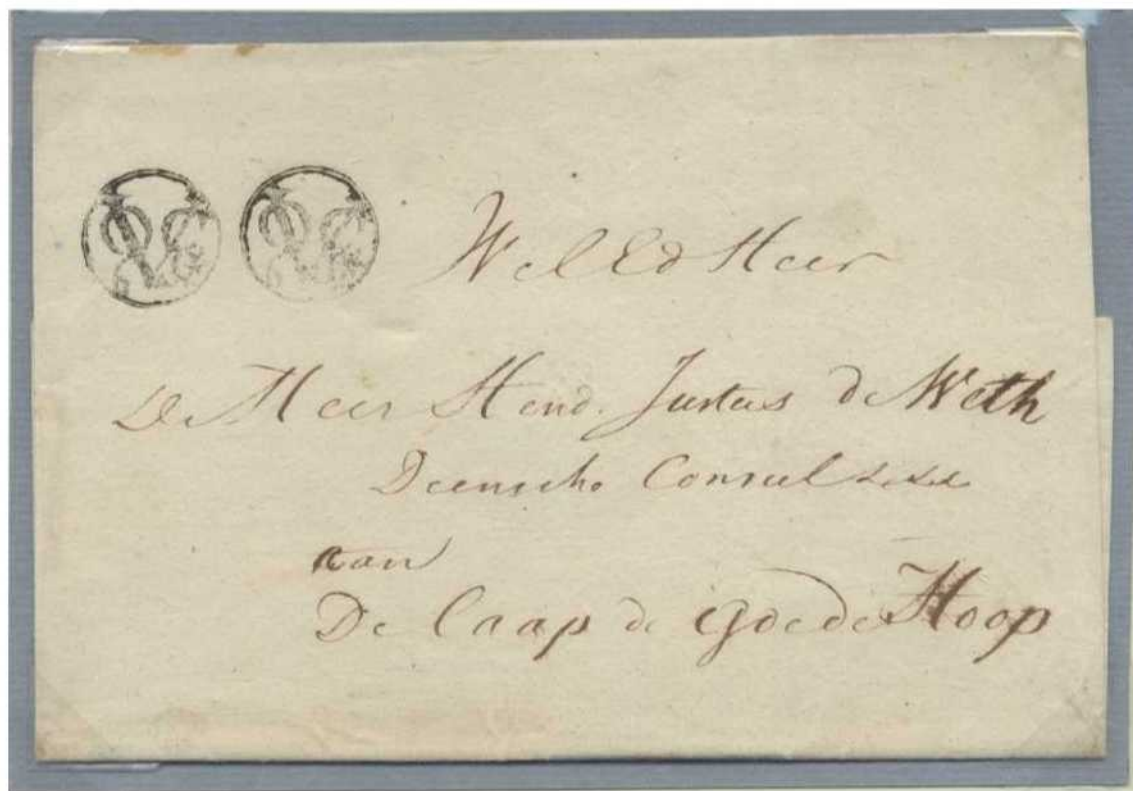 Wel Ed Heer
De Heer Hend. Justus de Weth
Deensche Consul &c &c
aan
De Caap de Goede Hoop